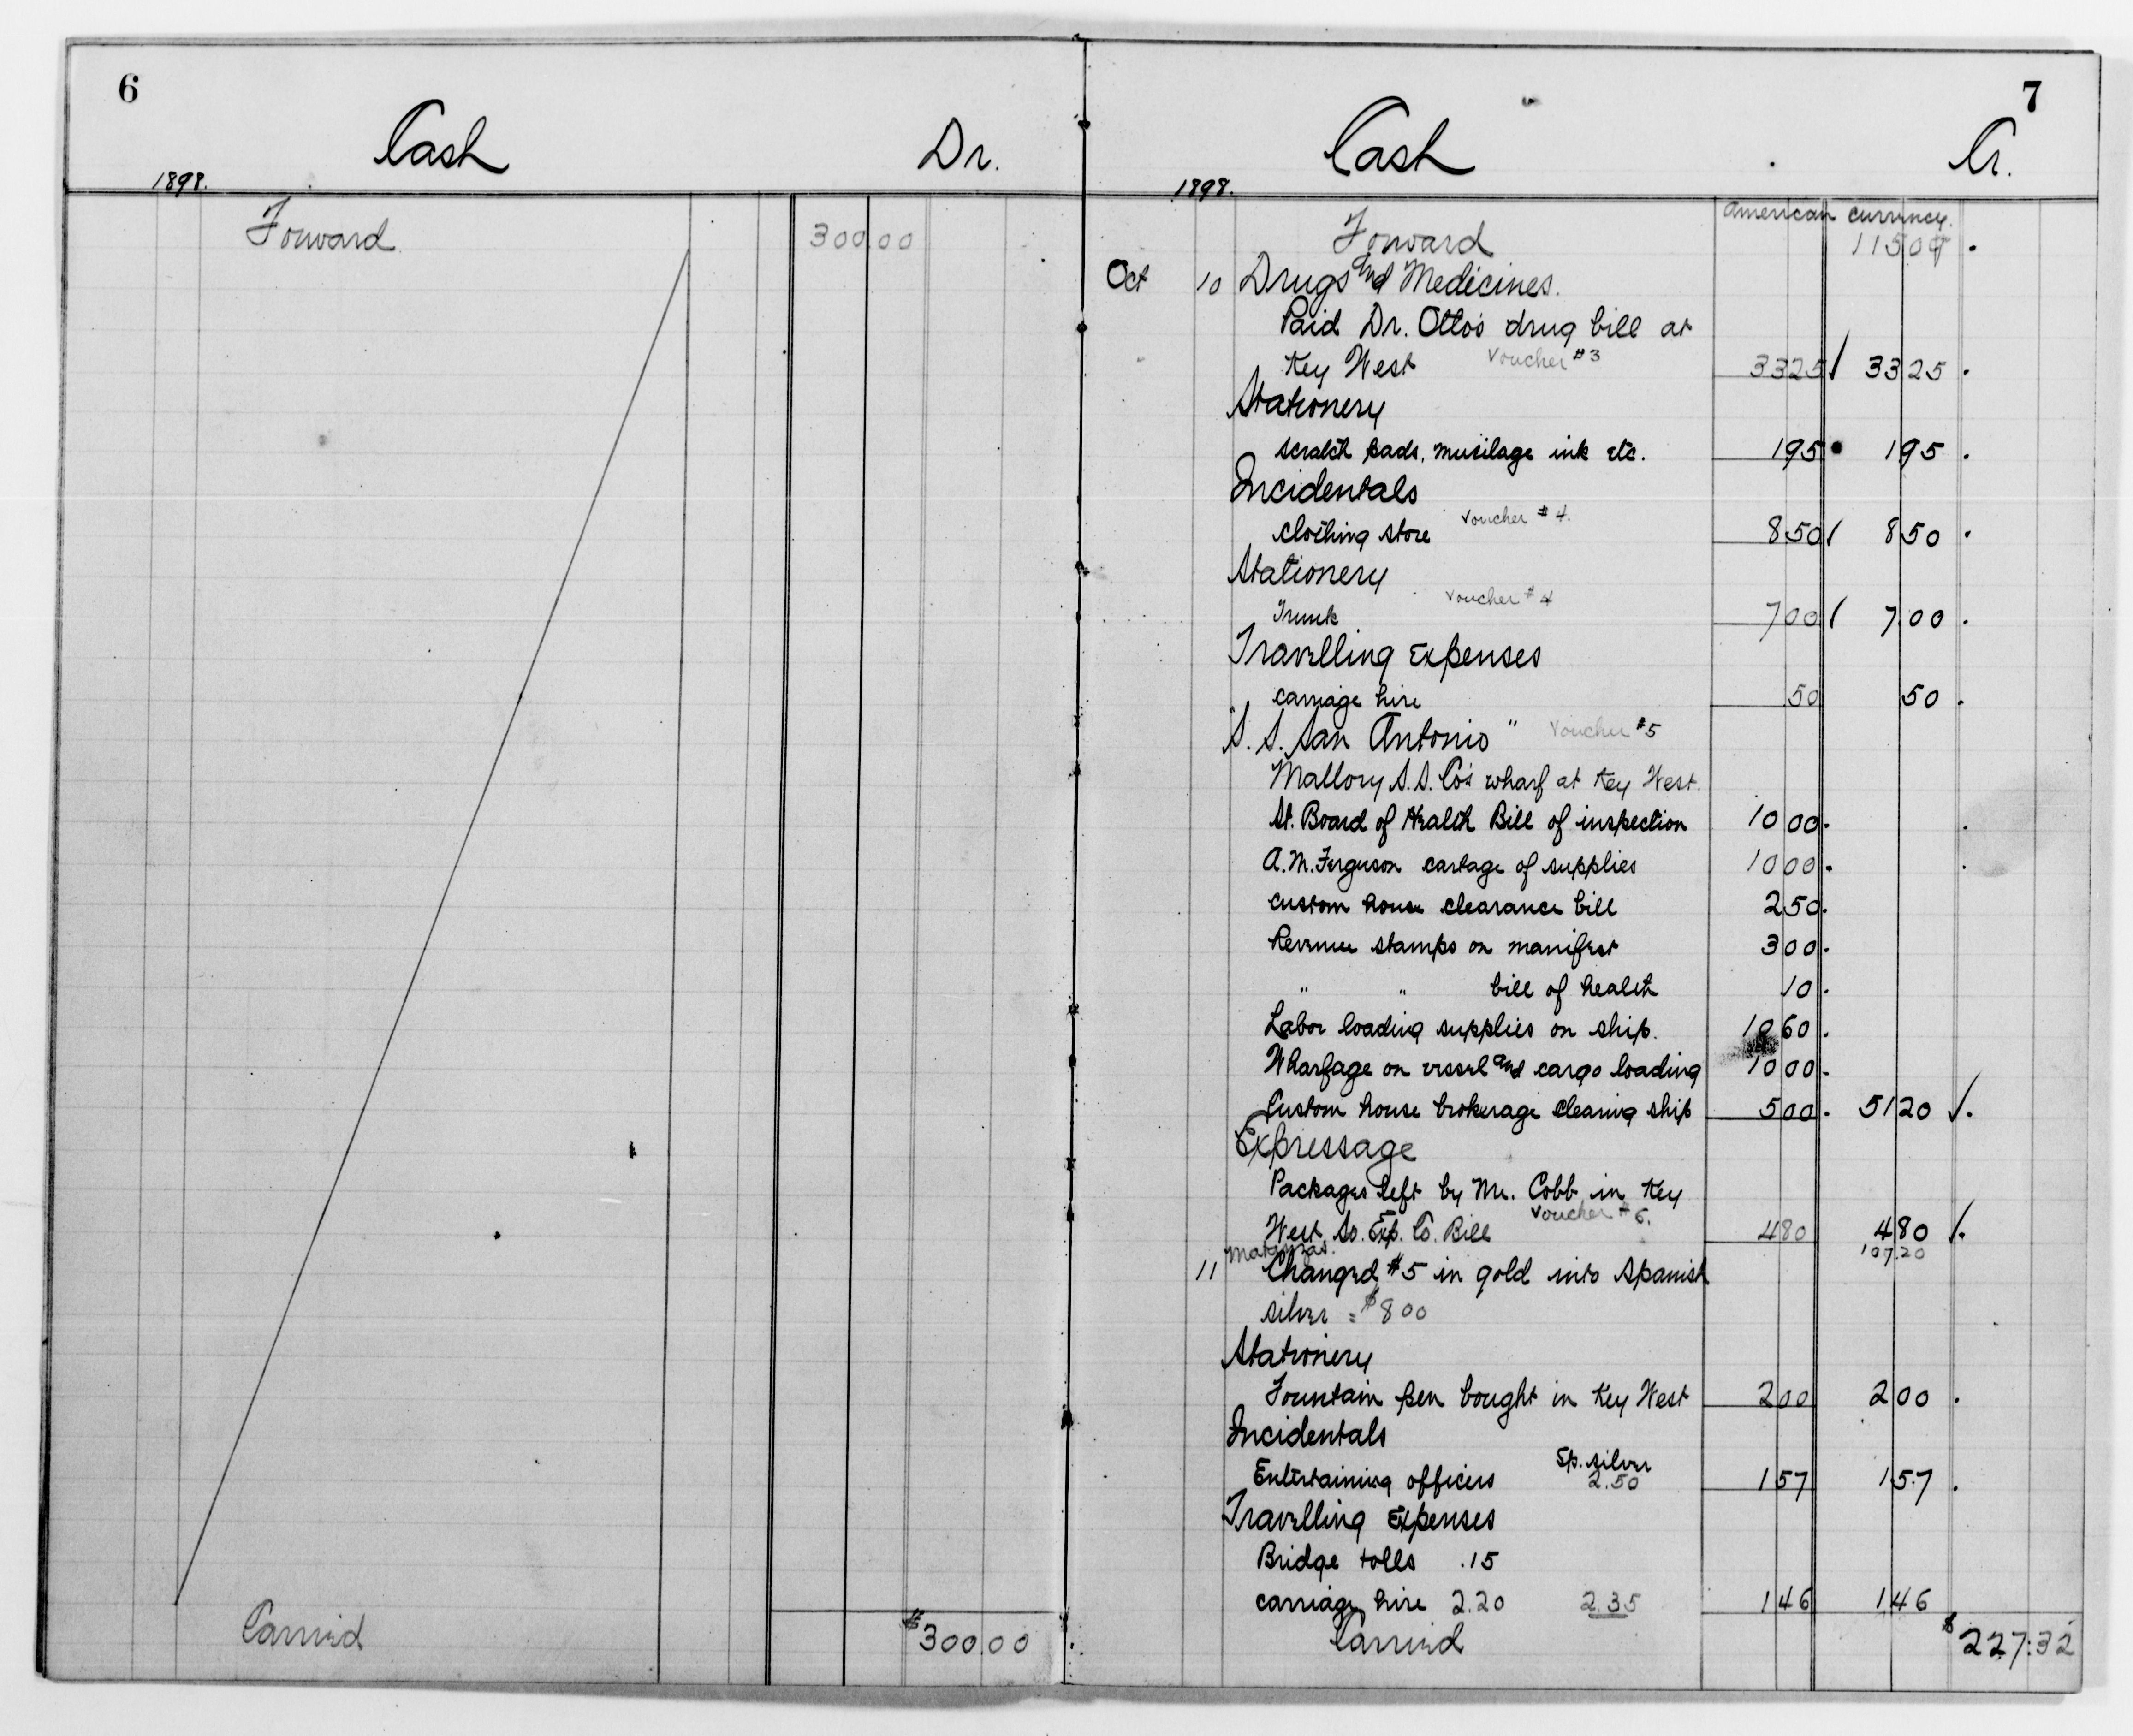 6
Cash Dr.
1898.
Forward 300.00
Carried $300.00
7
Cash Cr.
1898.
American currency.
Forward 115 09
Oct 10 Drugs and Medicines.
Paid Dr. Otto's drug bill at
Key West Voucher #3 33 25 / 33 25 .
Stationery
scratch pads, musilage ink etc. 1 95 1 95 .
Incidentals
Clothing store Voucher #4. 8 50 / 8 50 .
Stationery
Trunk Voucher #4 7 00 / 7 00 .
Travelling Expenses
carriage hire 50 50 .
"S. S. San Antonio" Voucher #5
Mallory S.S. Co's wharf at Key West.
St. Board of Health Bill of inspection 10 00.
A.M. Ferguson cartage of supplies 10 00.
Custom house clearance bill 2 50.
Revenue stamps on manifest 3 00.
" " bill of health 10.
Labor loading supplies on ship. 10 60.
Wharfage on vessel and cargo loading 10 00.
Custom house brokerage clearing ship 5 00. 51 20 √.
Expressage
Packages left by Mr. Cobb in Key
West So. Exp. Co. Bill Voucher #6. 4 80 4 80 √.
107.20
Matanzas.
11 Changed $5 in gold into Spanish
silver = $8 00
Stationery
Fountain pen bought in Key West 2 00 2 00 .
Incidentals
Entertaining officers Sp. silver 2.50 1 57 1 57 .
Travelling Expenses
Bridge tolls .15
carriage hire 2.20 2.35 1 46 1 46
Carried $227.32